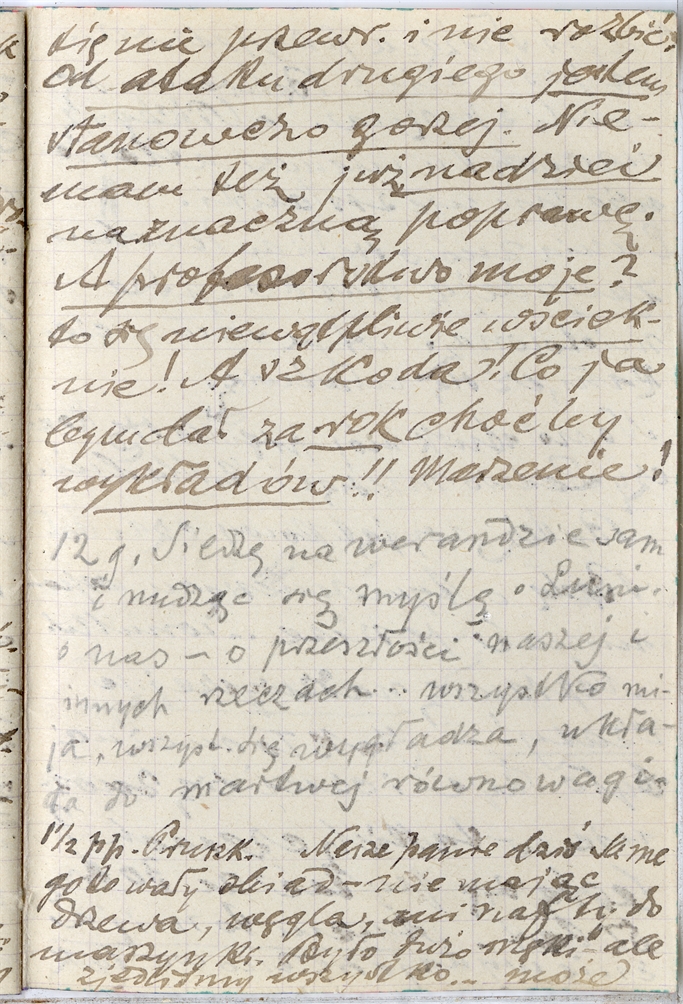 się nie przewr. i nie rozbić.
Od ataku drugiego jestem
stanowczo gorzej. Nie-
mam też już nadziei
na znaczną poprawę.
A profesorstwo moje?
to się niewątpliwie wściek-
nie! A szkoda! Co ja
bym dał za rok choćby
wykładów!! Marzenie!
12 g. Siedzę na werandzie sam
i nudząc się myślę o Luni.
o nas – o przeszłości naszej i
innych rzeczach.. wszystko mi-
ja, wszyst. się wygładza, ukła-
da do martwej równowagi.
1½ pp. Pruszk. Nasze panie dziś same
gotowały obiad – nie mając
drzewa, węgla, ani nafty do
maszynki. Było dużo męki ale
zjedliśmy wszystko... może